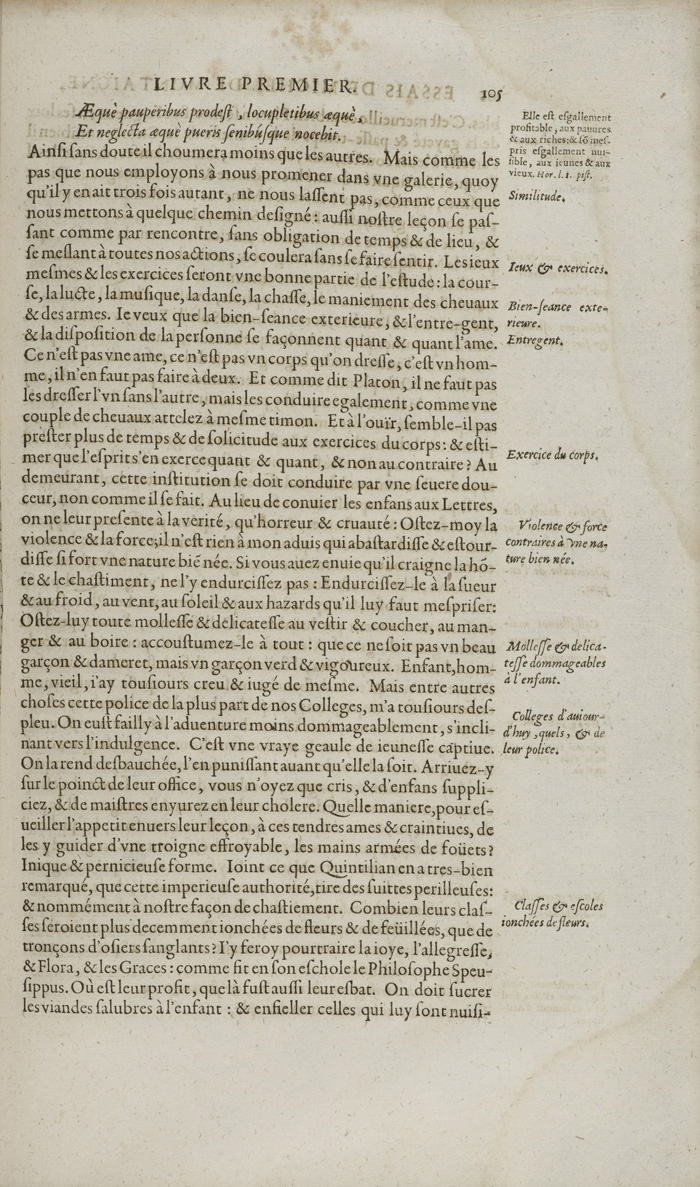 LIVRE PREMIER. 105
Æquè pauperibus prodest, locupletibus æquè,
Et neglecta æquè pueris senibúsque nocebit.
Elle est esgallement
profitable, aux pauures
& aux riches: & sõ mes-
pris esgallement nui-
sible, aux ieunes & aux
vieux. Hor. l. 1. pist.
Ainsi sans doute il choumera moins que les autres. Mais comme les
pas que nous employons à nous promener dans vne galerie, quoy
qu'il y en ait trois fois autant, ne nous lassent pas, comme ceux que
Similitude.
nous mettons à quelque chemin designé: aussi nostre leçon se pas-
sant comme par rencontre, sans obligation de temps & de lieu, &
se meslant à toutes nos actions, se coulera sans se faire sentir. Les ieux
Ieux & exercices.
mesmes & les exercices seront vne bonne partie de l'estude: la cour-
se, la lucte, la musique, la danse, la chasse, le maniement des cheuaux
& des armes. Ie veux que la bien-seance exterieure, & l'entre-gent,
Bien-seance exte-
rieure.
& la disposition de la personne se façonnent quant & quant l'ame.
Entregent.
Ce n'est pas vne ame, ce n'est pas vn corps qu'on dresse, c'est vn hom-
me, il n'en faut pas faire à deux. Et comme dit Platon, il ne faut pas
les dresser l'vn sans l'autre, mais les conduire egalement, comme vne
couple de cheuaux attelez à mesme timon. Et à l'ouïr, semble-il pas
prester plus de temps & de solicitude aux exercices du corps: & esti-
mer que l'esprit s'en exerce quant & quant, & non au contraire? Au
Exercice du corps.
demeurant, cette institution se doit conduire par vne seuere dou-
ceur, non comme il se fait. Au lieu de conuier les enfans aux Lettres,
on ne leur presente à la verité, qu'horreur & cruauté: Ostez-moy la
violence & la force; il n'est rien à mon aduis qui abastardisse & estour-
disse si fort vne nature biẽ née. Si vous auez enuie qu'il craigne la hõ-
Violence & force
contraires à vne na-
ture bien née.
te & le chastiment, ne l'y endurcissez pas: Endurcissez-le à la sueur
& au froid, au vent, au soleil & aux hazards qu'il luy faut mespriser:
Ostez-luy toute mollesse & delicatesse au vestir & coucher, au man-
ger & au boire: accoustumez-le à tout: que ce ne soit pas vn beau
garçon & dameret, mais vn garçon verd & vigoureux. Enfant, hom-
me, vieil, i'ay tousiours creu & iugé de mesme. Mais entre autres
Mollesse & delica-
tesse dommageables
à l'enfant.
choses cette police de la plus part de nos Colleges, m'a tousiours des-
pleu. On eust failly à l'aduenture moins dommageablement, s'incli-
nant vers l'indulgence. C'est vne vraye geaule de ieunesse captiue.
Colleges d'auiour-
d'huy, quels, & de
leur police.
On la rend desbauchée, l'en punissant auant qu'elle la soit. Arriuez-y
sur le poinct de leur office, vous n'oyez que cris, & d'enfans suppli-
ciez, & de maistres enyurez en leur cholere. Quelle maniere, pour es-
ueiller l'appetit enuers leur leçon, à ces tendres ames & craintiues, de
les y guider d'vne troigne effroyable, les mains armées de foüets?
Inique & pernicieuse forme. Ioint ce que Quintilian en a tres-bien
remarqué, que cette imperieuse authorité, tire des suittes perilleuses:
& nommément à nostre façon de chastiement. Combien leurs clas-
Classes & escoles
ionchées de fleurs.
ses seroient plus decemment ionchées de fleurs & de feüillées, que de
tronçons d'osiers sanglants? I'y feroy pourtraire la ioye, l'allegresse,
& Flora, & les Graces: comme fit en son eschole le Philosophe Speu-
sippus. Où est leur profit, que là fust aussi leur esbat. On doit sucrer
les viandes salubres à l'enfant: & enfieller celles qui luy sont nuisi-